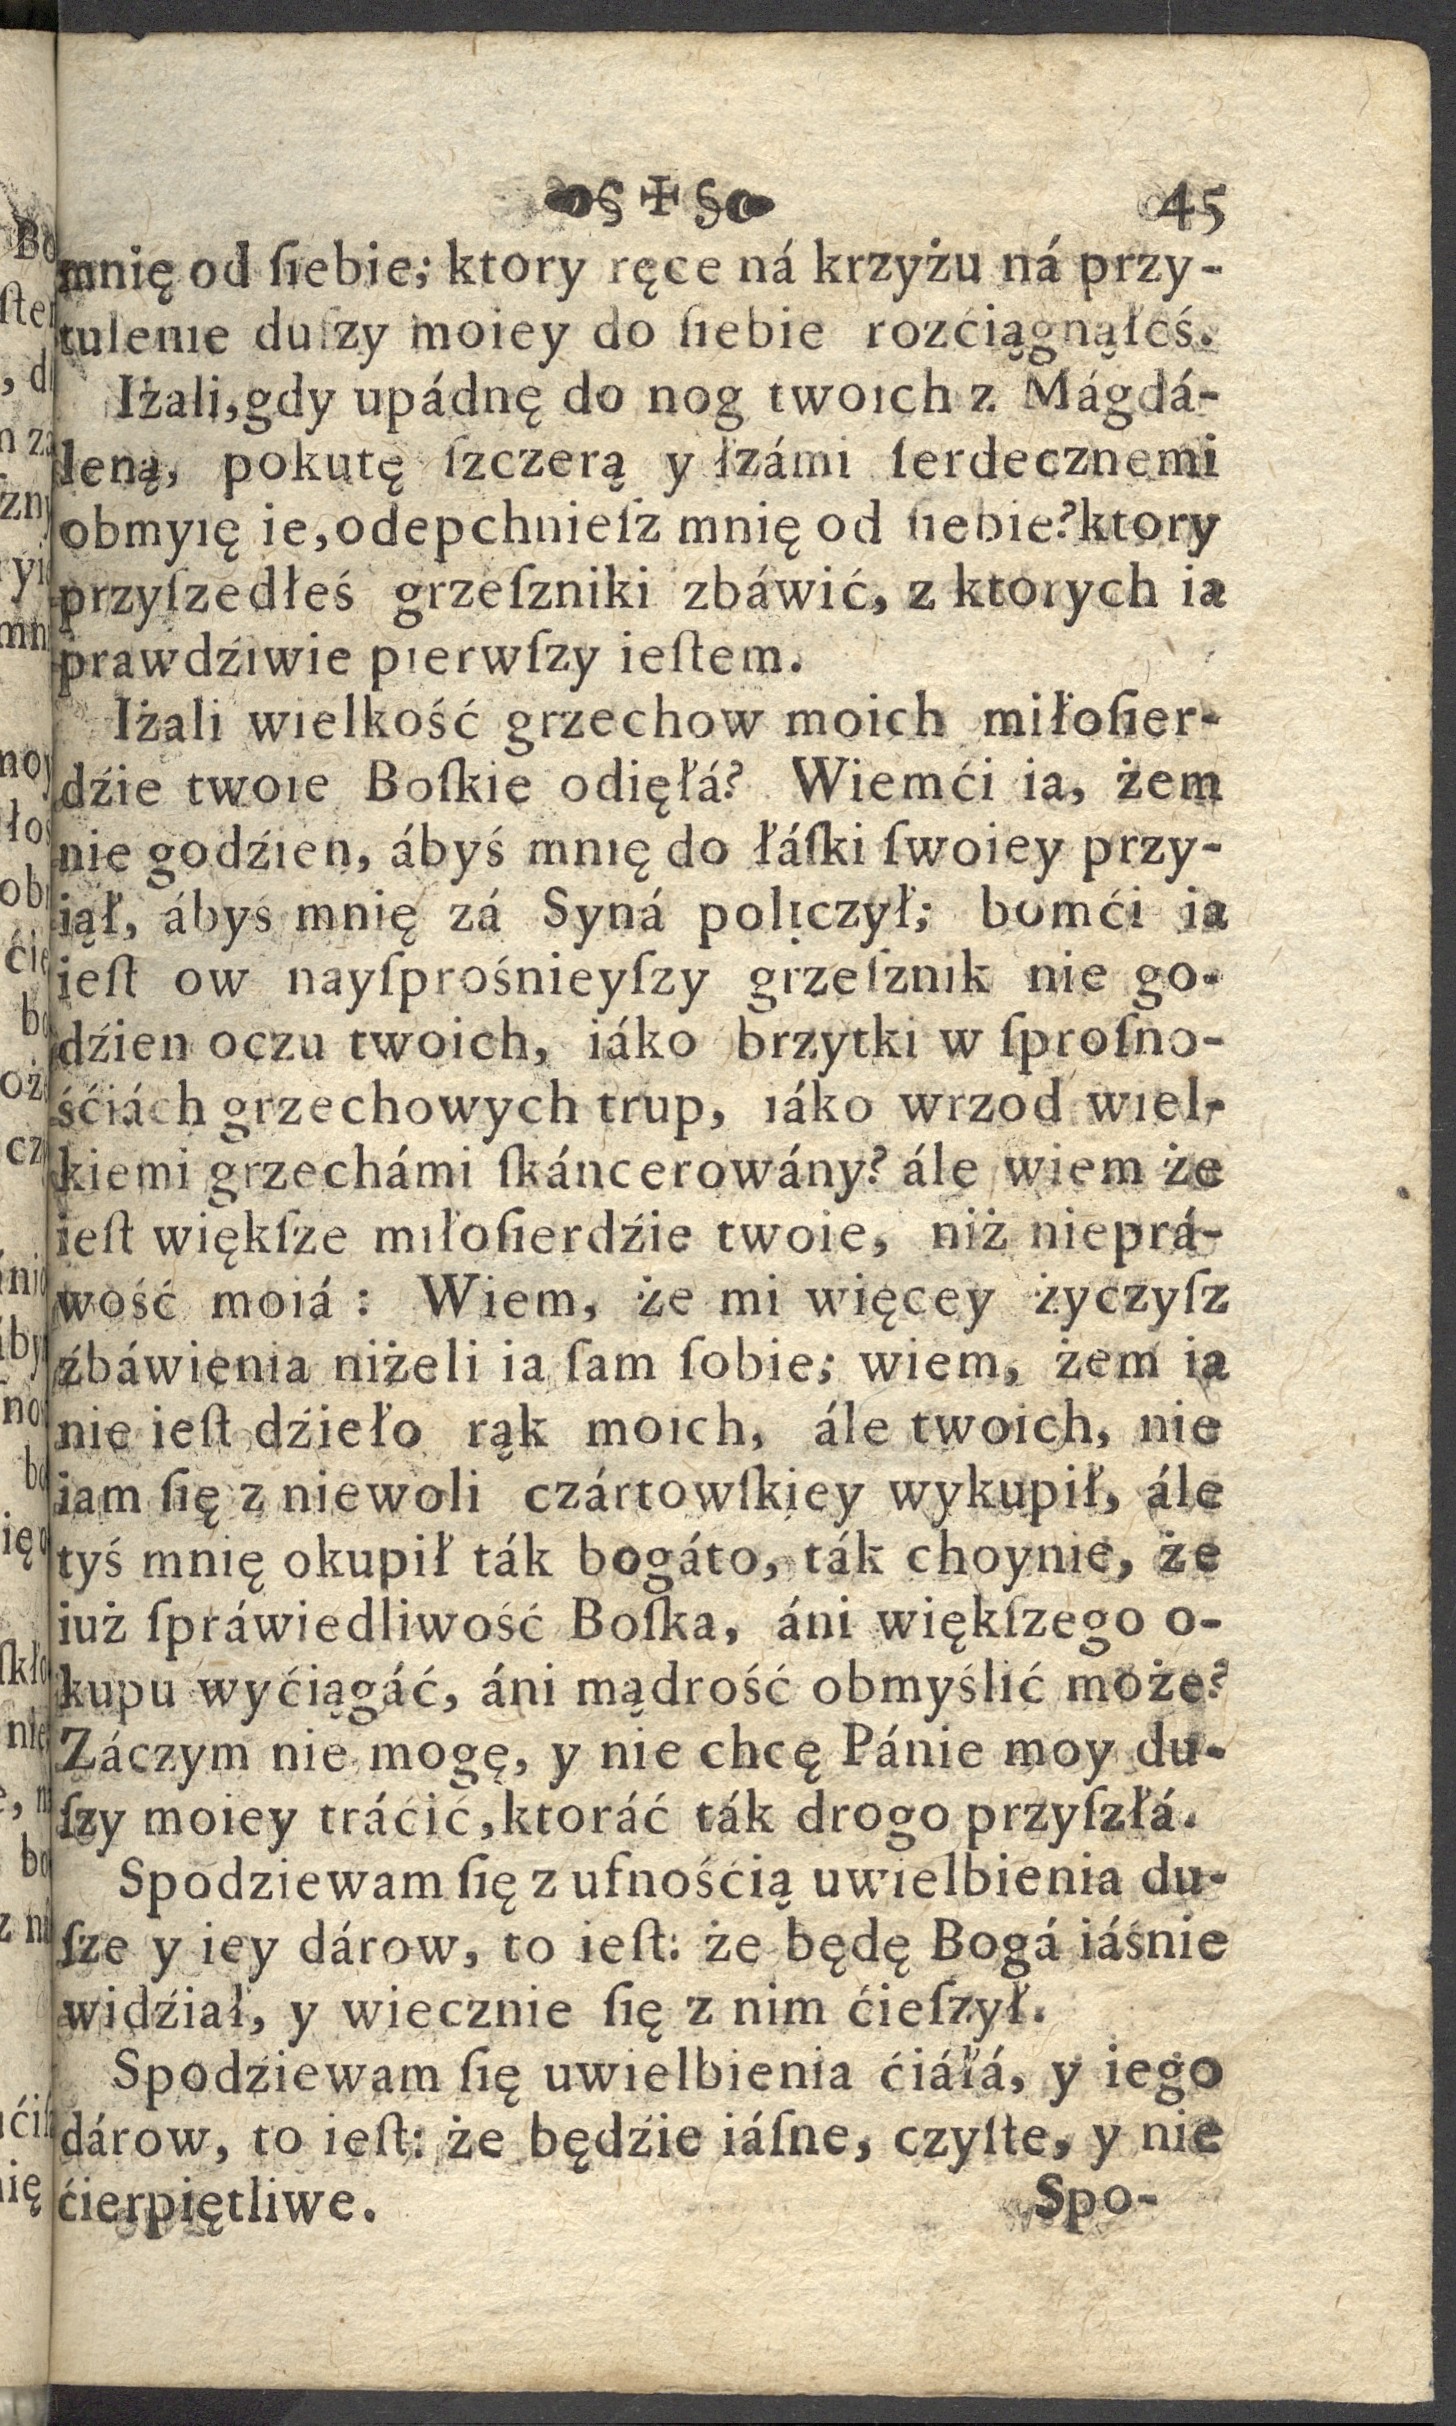 § ✠ § 45
mnię od ſiebie; ktory ręce ná krzyżu ná przy-
tulenie duſzy moiey do ſiebie rozćiągnąłeś.
Iżali, gdy upádnę do nog twoich z Mágdá-
leną, pokutę ſzczerą y łzámi ſerdecznemi
obmyię ie, odepchnieſz mnię od ſiebie? ktory
przyſzedłeś grzeſzniki zbáwić, z ktorych ia
prawdźiwie pierwſzy ieſtem.
Iżali wielkość grzechow moich miłoſier-
dźie twoie Boſkie odięłá? Wiemći ia, żem
nie godźien, ábyś mnię do łáſki ſwoiey przy-
iął, ábyś mnię zá Syná policzył; bomći ia
ieſt ow nayſprośnieyſzy grzeſznik nie go-
dźien oczu twoich, iáko brzytki w ſproſno-
śćiách grzechowych trup, iáko wrzod wiel-
kiemi grzechámi ſkáncerowány? ále wiem że
ieſt więkſze miłoſierdźie twoie, niż nieprá-
wość moiá: Wiem, że mi więcey życzyſz
źbáwienia niżeli ia ſam ſobie; wiem, żem ia
nie ieſt dźieło rąk moich, ále twoich, nie
iam ſię z niewoli czártowſkiey wykupił, ále
tyś mnię okupił ták bogáto, ták choynie, że
iuż ſpráwiedliwość Boſka, áni więkſzego o-
kupu wyćiągáć, áni mądrość obmyślić może?
Záczym nie mogę, y nie chcę Pánie moy du-
ſzy moiey tráćić, ktoráć ták drogo przyſzłá.
Spodziewam ſię z ufnośćią uwielbienia du-
ſze y iey dárow, to ieſt: że będę Bogá iáśnie
widźiał, y wiecznie ſię z nim ćieſzył.
Spodźiewam ſię uwielbienia ćiáłá, y iego
dárow, to ieſt: że będźie iáſne, czyſte, y nie
ćierpiętliwe. Spo-